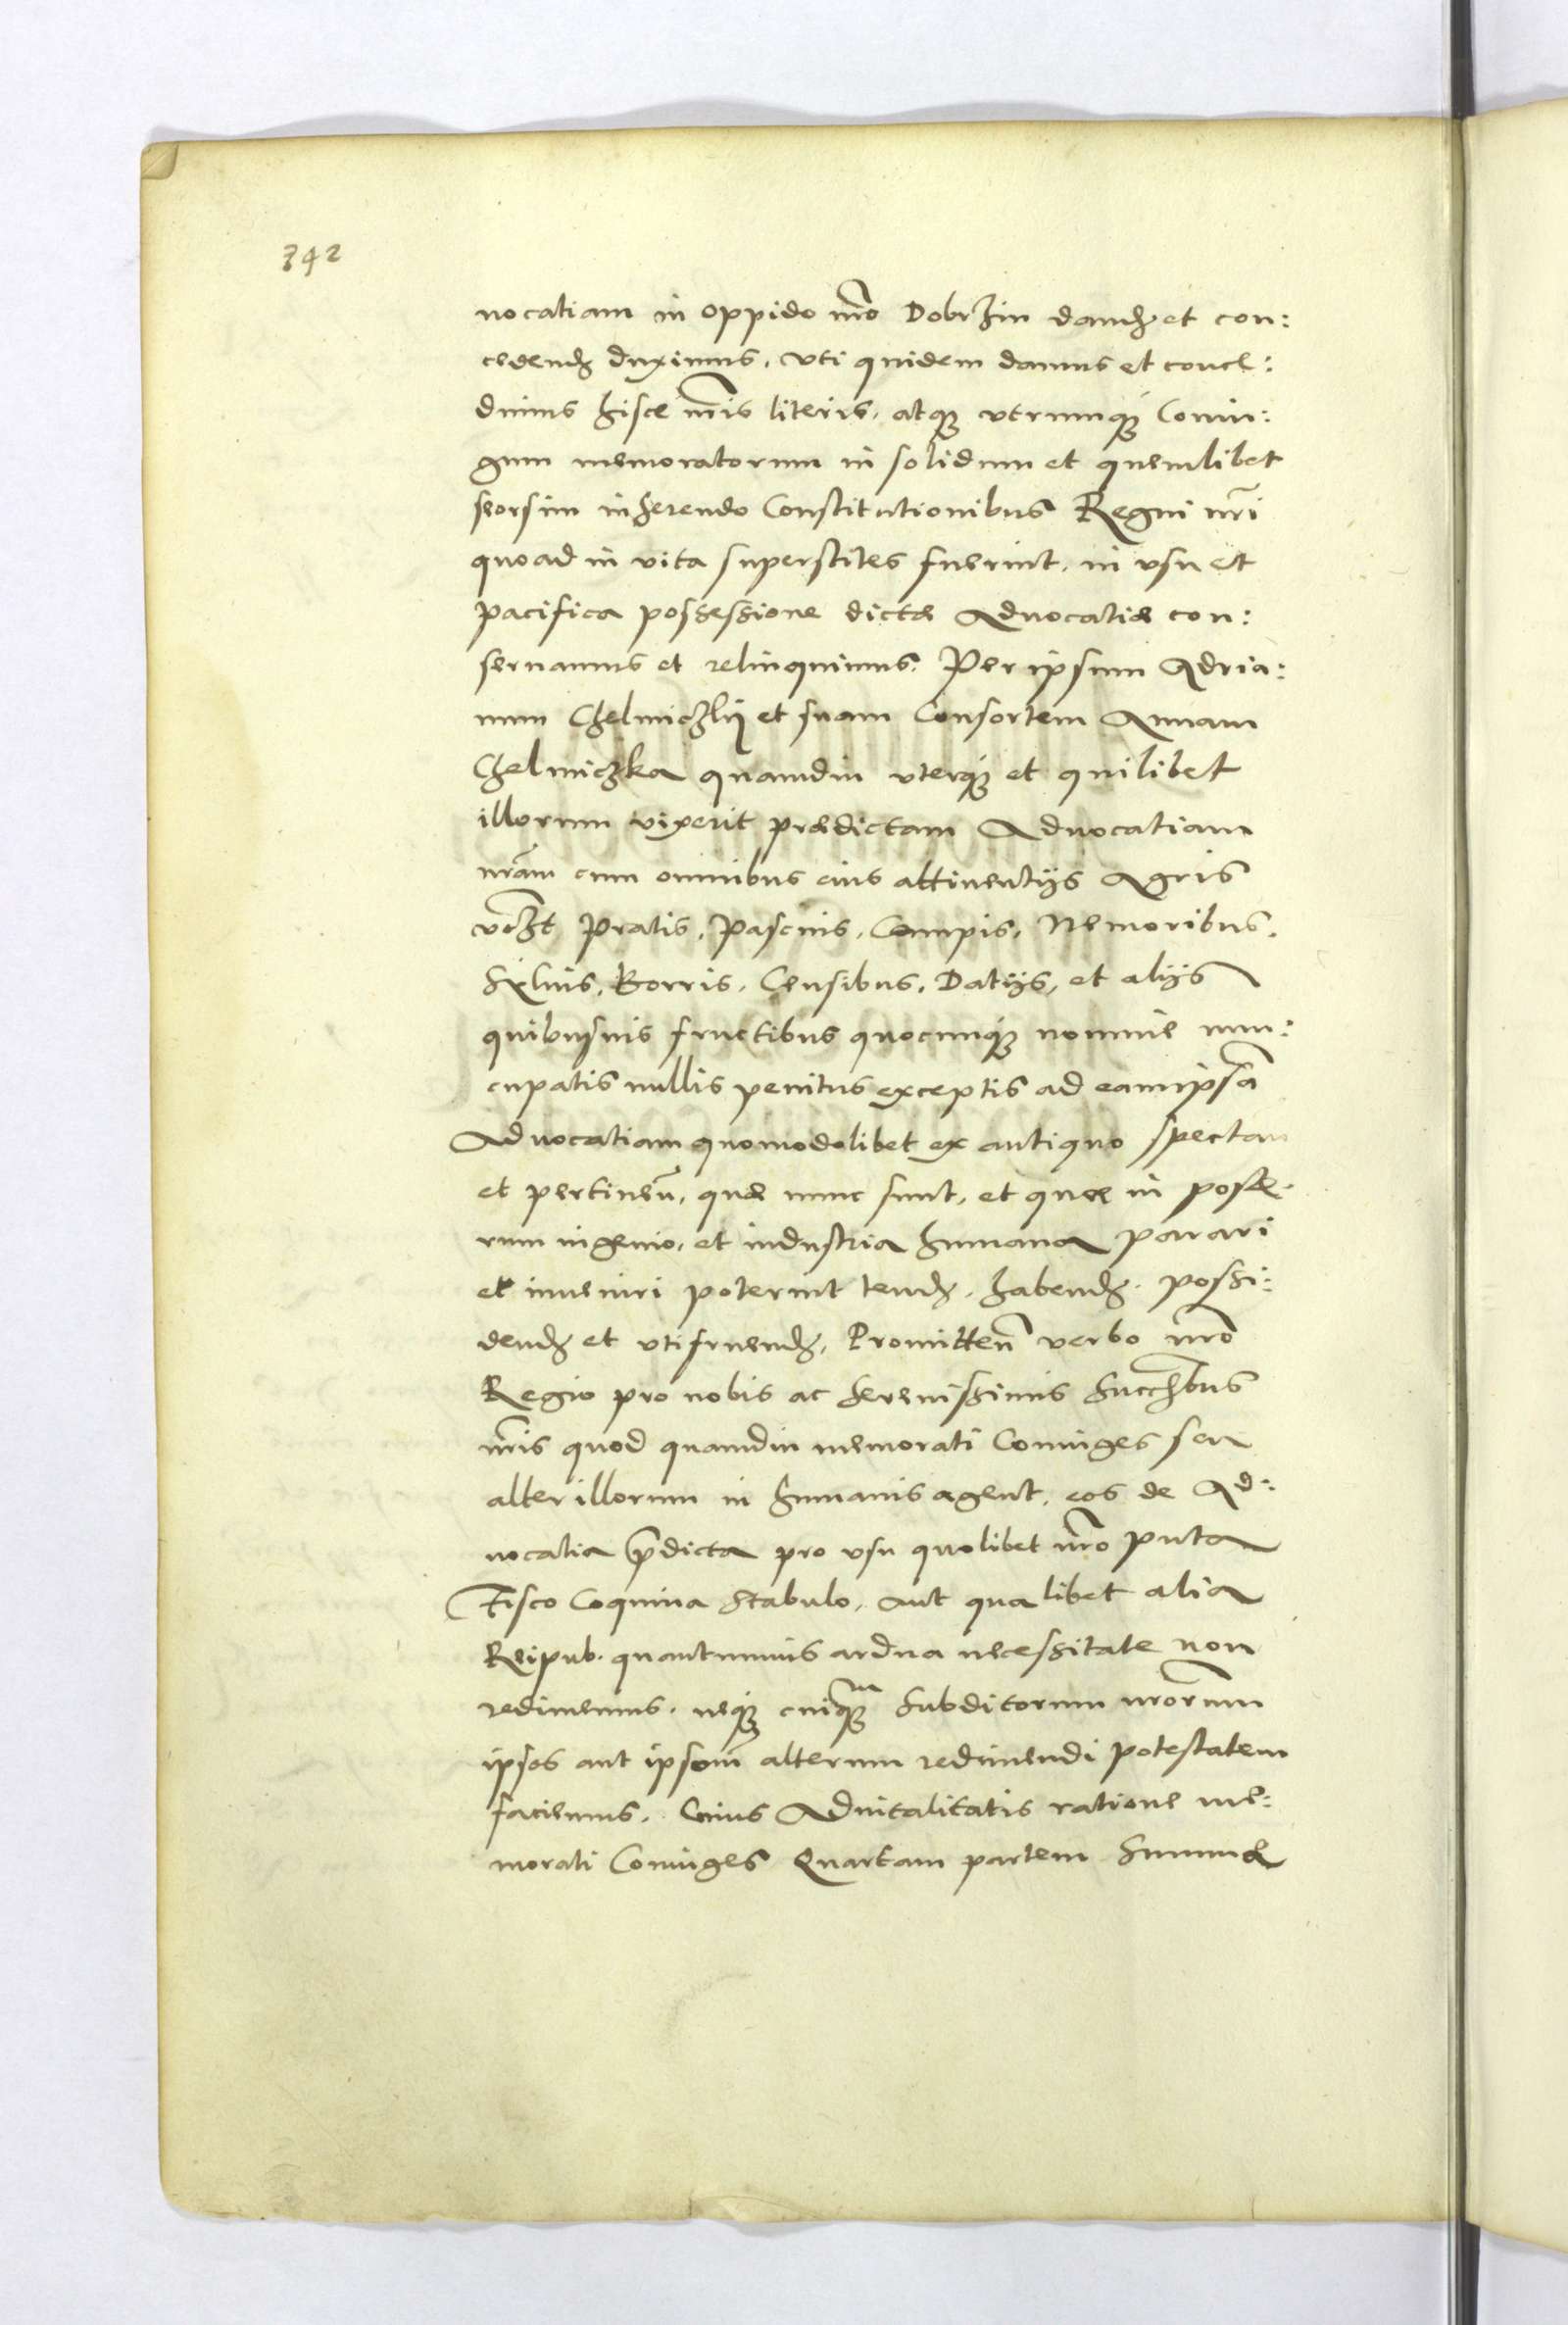 342
uocatiam in oppido nro Dobrzin dand et con:
cedend duximus. vti quidem damus et conce:
dimus hisce nris literis. atq vtrumq Coniu:
gum memoratorum in solidum et quemlibet
seorsim inherendo Constitutionibus Regni nri
quoad in vita superstites fuerint. in vsu et
pacifica possessione dictæ Aduocatiæ con:
seruamus et relinquimus. Per ipsum Adria:
num Chelmiczkij et suam Consortem Annam
Chelmiczka quamdiu vterq et quilibet
illorum vixerit prædictam Aduocatiam
nram cum omnibus eius attinentijs Agris
vczt Pratis, Pascuis, Campis, Nemoribus.
Syluis, Borris, Censibus, Datijs, et alijs
quibusuis fructibus quocunq nomine nun:
cupatis nullis penitus exceptis ad eamipsa
Aduocatiam quomodolibet ex antiquo spectan
et pertinen, quæ nunc sunt, et quæ in poste.
rum ingenio, et industria humana parari
et inueniri poterint tend, habend. possi:
dend et vtifruend, Promitten verbo nro
Regio pro nobis ac Serenissimis Succribus
nris quod quamdiu memorati Coniuges seu
alter illorum in humanis agent, eos de Ad:
uocatia pdicta pro vsu quolibet nro puta
Fisco Coquina Stabulo, aut qualibet alia
Reipub. quantumuis ardua necessitate non
redimemus. neq cuiqm Subditorum nrorum
ipsos aut ipsom alterum redimendi potestatem
faciemus. Cuius Aduitalitatis ratione me:
morati Coniuges Quartam partem Summæ